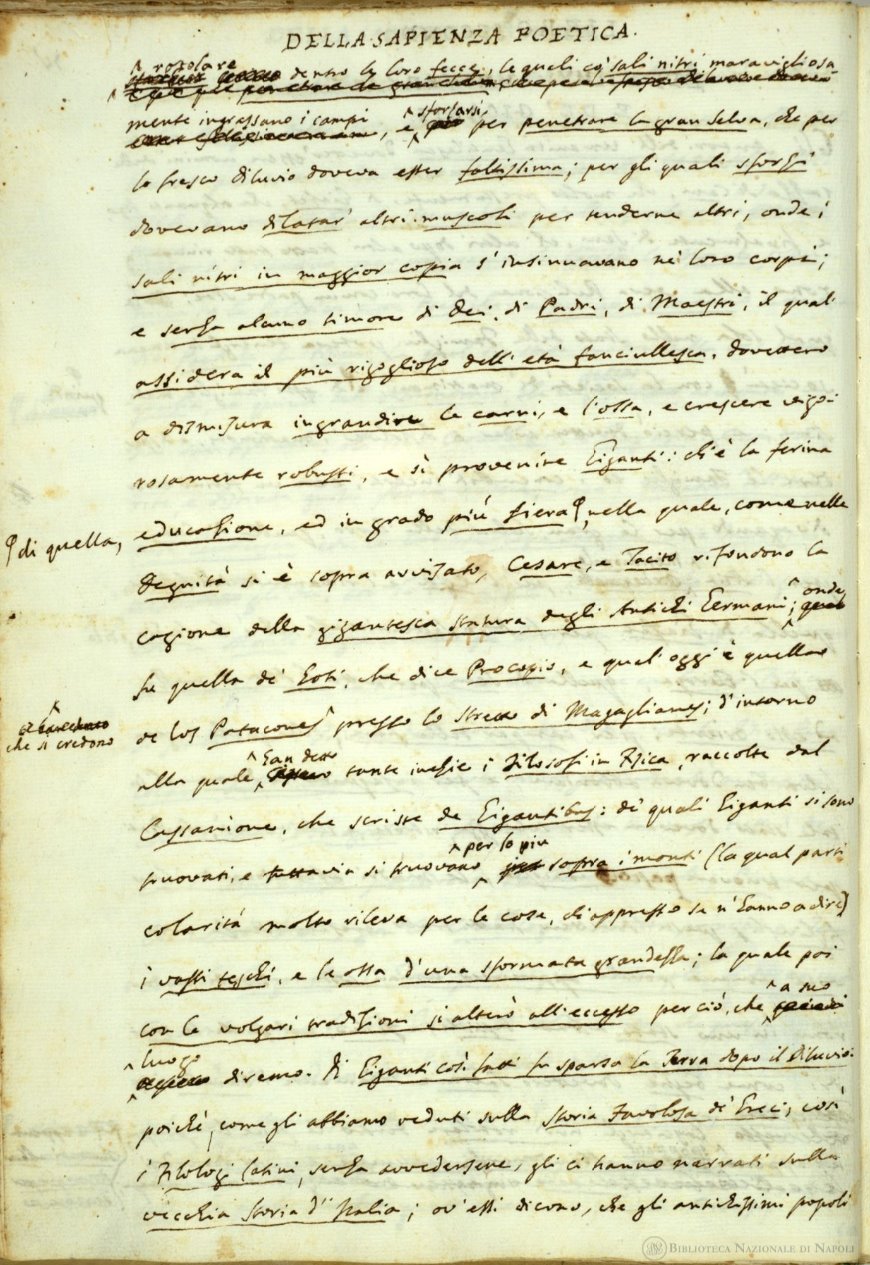 DELLA SAPIENZA POETICA.
rotolare dentro le loro fecce, le quali co' sali nitri maravigliosa
mente ingrassano i campi, e sforzarsi per penetrare la gran selva, che per
lo fresco diluvio doveva esser foltissima; per gli quali sforzi
dovevano dilatar' altri muscoli per tenderne altri, onde i
sali nitri in maggior copia s' insinuavano ne' loro corpi;
e senza alcuno timore di Dei, di Padri, di Maestri, il qual'
assidera il più rigoglioso dell' età fanciullesca, dovettero
a dismisura ingrandire le carni, e l'ossa, e crescere vigo-
rosamente robusti, e sì provenire Giganti: ch'è la ferina
educazione, ed in grado più fiera di quella, nella quale, come nelle
Degnità si è sopra avvisato, Cesare, e Tacito rifondono la
cagione della gigantesca statura degli Antichi Germani; onde
fu quella de' Goti, che dice Procopio, e qual' oggi è quella
de los Patacones che si credono presso lo Stretto di Magaglianes; d'intorno
alla quale han dette tante inezie i Filosofi in Fisica, raccolte dal
Cassanione, che scrisse de Gigantibus: de' quali Giganti si sono
truovati, e tuttavia si truovano per lo più sopra i monti (la qual parti
colarità molto rileva per le cose, ch'appresso se n' hanno a dire)
i vasti teschi, e le ossa d'una sformata grandezza; la quale poi
con le volgari tradizioni si alterò all' eccesso per ciò, che a suo
luogo diremo. Di Giganti così fatti fu sparsa la Terra dopo il Diluvio:
poichè, come gli abbiamo veduti sulla Storia Favolosa de' Greci, così
i Filologi latini, senza avvedersene, gli ci hanno narrati sulla
vecchia Storia d' Italia; ov' essi dicono, che gli antichissimi popoli
BIBLIOTECA NAZIONALE DI NAPOLI